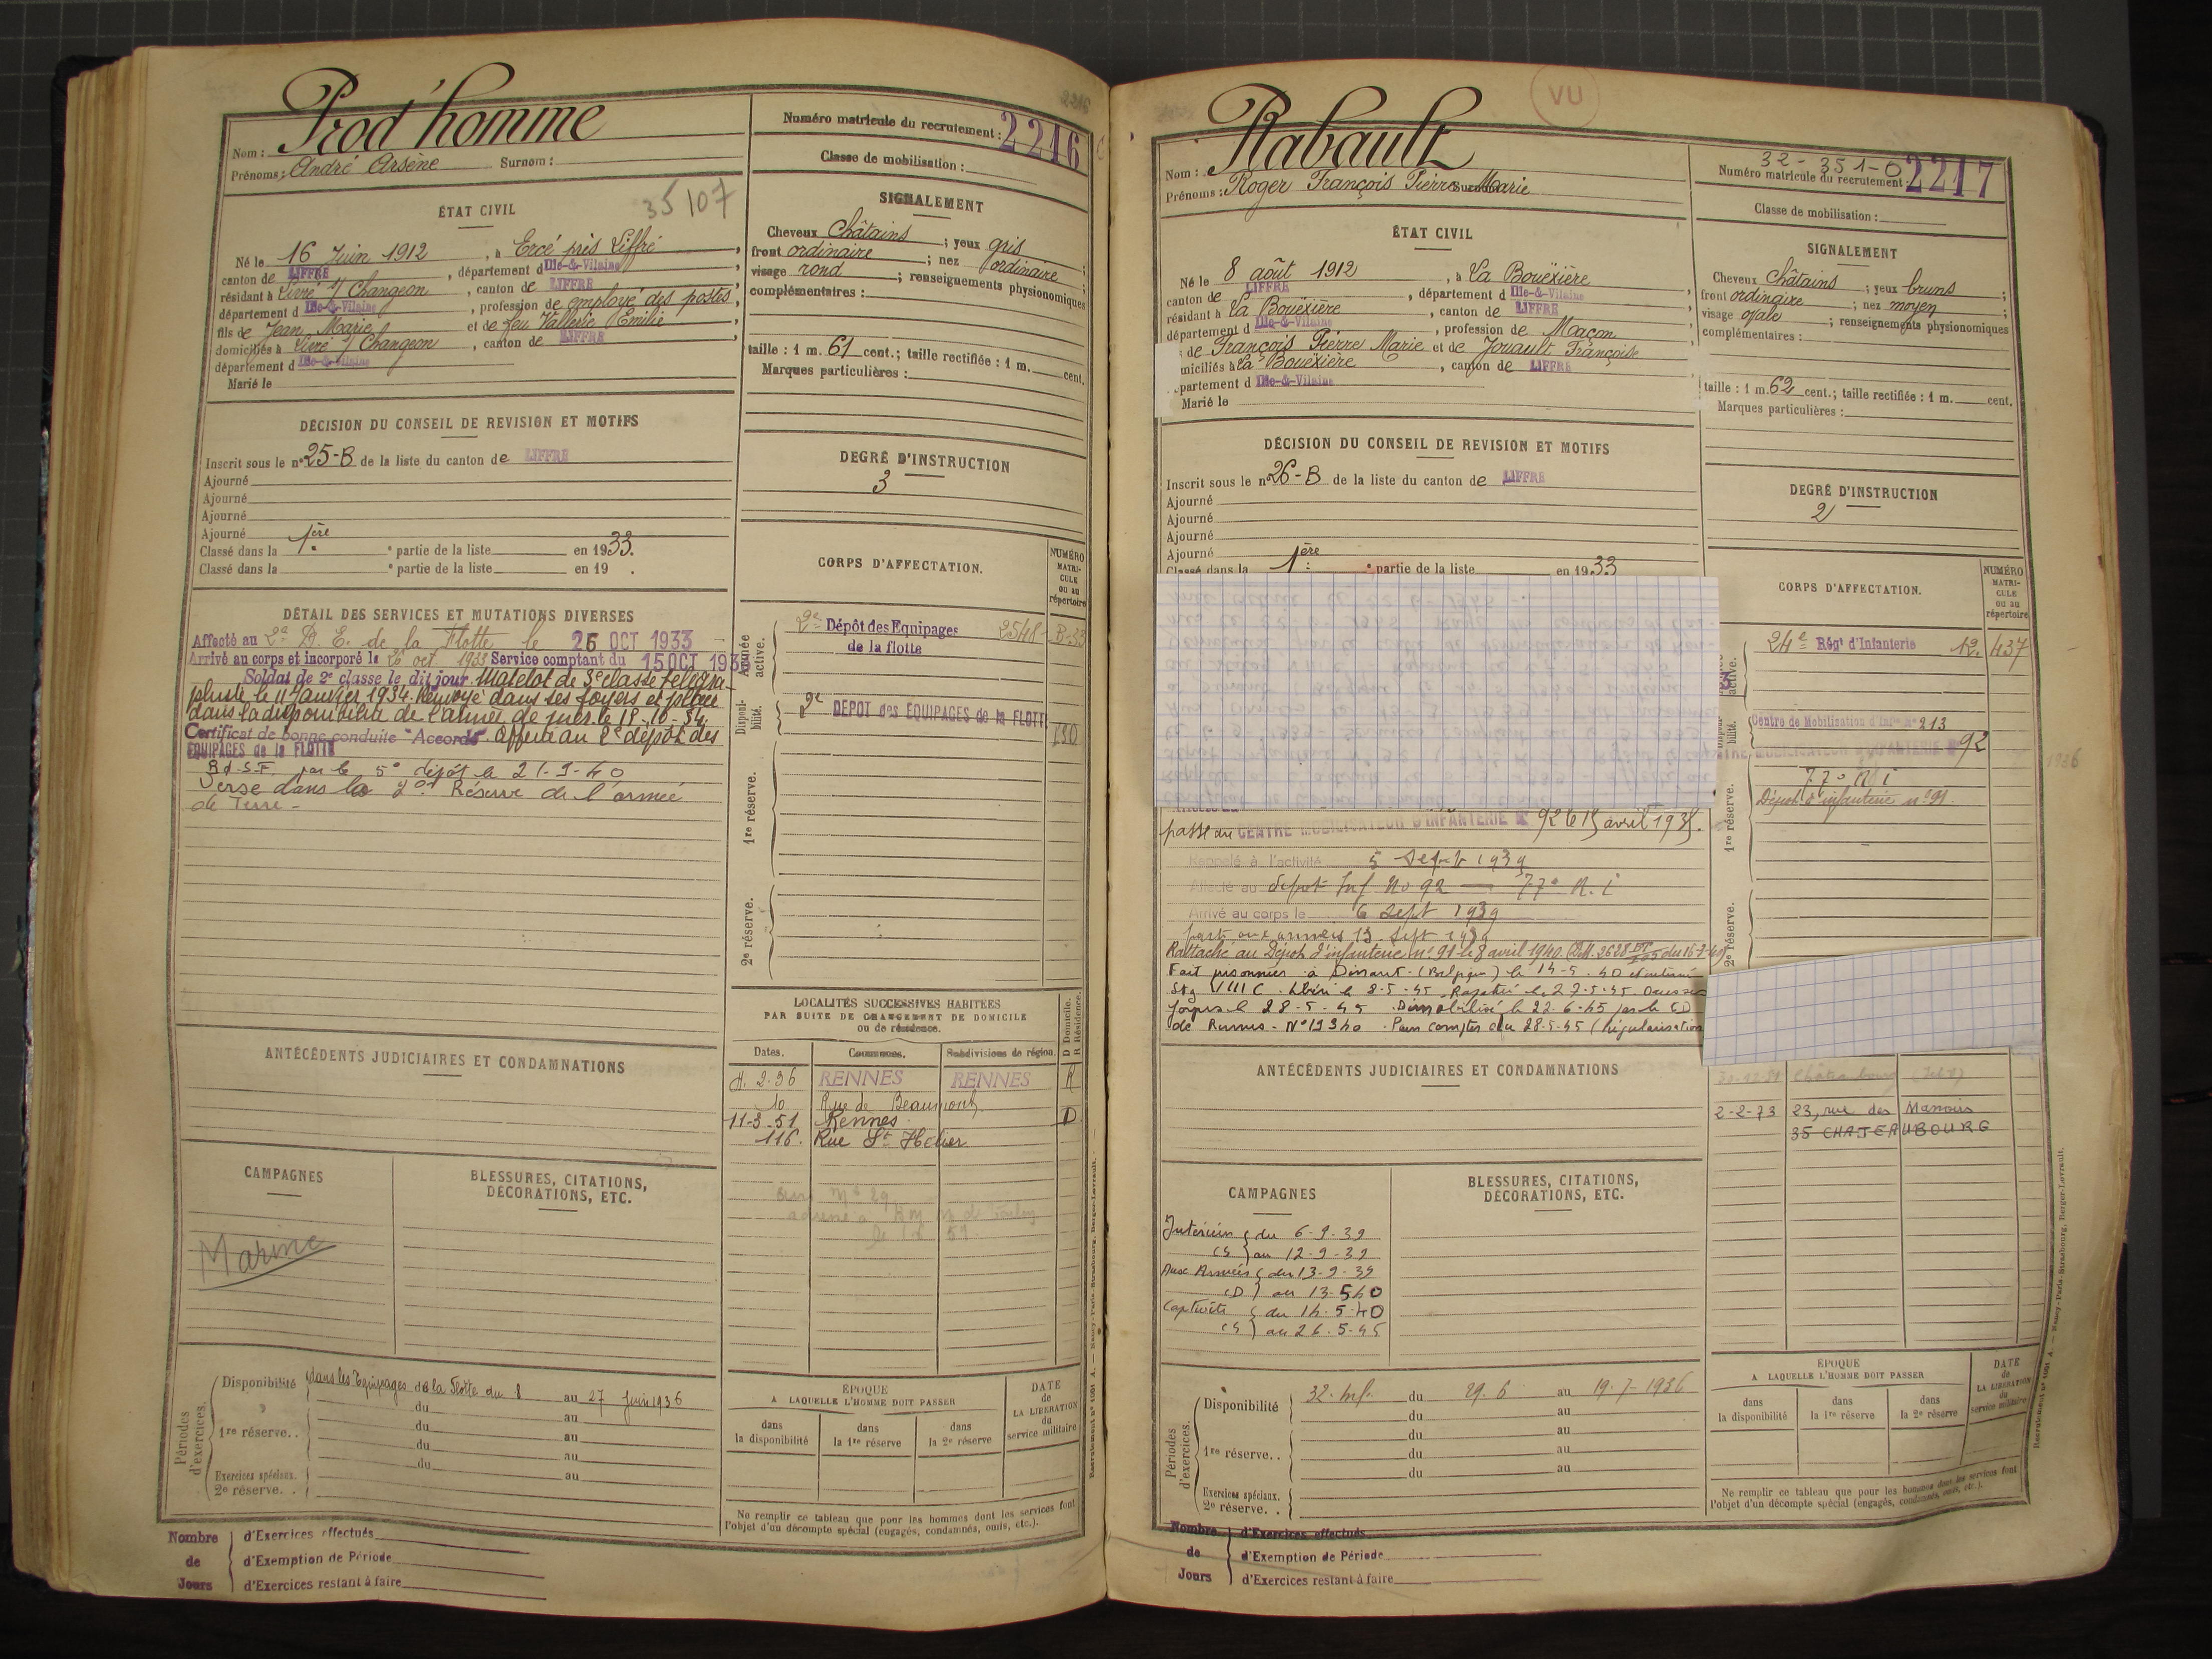 Nom : Prod'homme
Prénoms : André Arsène Surnom :
Numéro matricule du recrutement : 2216
Classe de mobilisation :
ÉTAT CIVIL
35107
Né le 16 Juin 1912, à Ercé près Liffré,
canton de LIFFRÉ, département d Ille-&-Vilaine,
résidant à Livré s/ Changeon, canton de LIFFRÉ,
département d Ille-&-Vilaine, profession de employé des postes,
fils de Jean Marie et de feu Vallerie Emilie,
domiciliés à Livré s/ Changeon, canton de LIFFRÉ,
département d Ille-&-Vilaine
Marié le
SIGNALEMENT
Cheveux Châtains ; yeux gris ;
front ordinaire ; nez ordinaire ;
visage rond ; renseignements physionomiques
complémentaires :
taille : 1 m. 61 cent.; taille rectifiée : 1 m. cent.
Marques particulières :
DÉCISION DU CONSEIL DE REVISION ET MOTIFS
Inscrit sous le n° 25-B de la liste du canton de LIFFRÉ
Ajourné
Ajourné
Ajourné
Ajourné
Classé dans la 1ère ° partie de la liste en 1933.
Classé dans la ° partie de la liste en 19 .
DEGRÉ D'INSTRUCTION
3
DÉTAIL DES SERVICES ET MUTATIONS DIVERSES
Affecté au 2e D. E. de la Flotte le 26 OCT 1933
Arrivé au corps et incorporé le 26 oct. 1933 Service comptant du 15 OCT 193
Soldat de 2e classe le dit jour. Matelot de 3e classe télégra-
phiste le 11 Janvier 1934. Renvoyé dans ses foyers et placé
dans la disponibilité de l'armée de mer le 15-10-34.
Certificat de bonne conduite "Accordé". Affecté au 2e dépôt des
EQUIPAGES de la FLOTTE
R d.S.F. par le 5e dépôt le 21-9-40
Versé dans la 2e Réserve de l'armée
de Terre -
CORPS D'AFFECTATION.
NUMÉRO MATRI-CULE ou au répertoire
Armée active.
2e Dépôt des Equipages 2548 - B-33
de la flotte
Disponi-bilité.
2e DEPOT des EQUIPAGES de la FLOTT
1re réserve.
2e réserve.
LOCALITÉS SUCCESSIVES HABITÉES
PAR SUITE DE CHANGEMENT DE DOMICILE
ou de résidence.
D Domicile. R Résidence.
Dates. Communes. Subdivisions de région.
4.2.36 RENNES RENNES R
10 Rue de Beaumont
11-3-51 Rennes D
116. Rue St Hélier
ANTÉCÉDENTS JUDICIAIRES ET CONDAMNATIONS
CAMPAGNES
BLESSURES, CITATIONS,
DÉCORATIONS, ETC.
Marine
Périodes d'exercices.
Disponibilité dans les Equipages de la Flotte du 8 au 27 Juin 1936
du au
1re réserve. . du au
du au
du au
Exercices spéciaux.
2e réserve. .
ÉPOQUE
A LAQUELLE L'HOMME DOIT PASSER
dans la disponibilité
dans la 1re réserve
dans la 2e réserve
DATE de LA LIBÉRATION du service militaire
Ne remplir ce tableau que pour les hommes dont les services font
l'objet d'un décompte spécial (engagés, condamnés, omis, etc.).
Nombre de Jours
d'Exercices effectués
d'Exemption de Période
d'Exercices restant à faire
VU
Nom : Rabault
Prénoms : Roger François Pierre Marie
32-351-0
Numéro matricule du recrutement : 2217
Classe de mobilisation :
ÉTAT CIVIL
Né le 8 août 1912, à La Bouëxière
canton de LIFFRÉ, département d Ille-&-Vilaine,
résidant à La Bouëxière, canton de LIFFRÉ,
département d Ille-&-Vilaine, profession de Maçon
de François Pierre Marie et de Jouault Françoise
miciliés à La Bouëxière, canton de LIFFRÉ
partement d Ille-&-Vilaine
Marié le
SIGNALEMENT
Cheveux Châtains ; yeux bruns ;
front ordinaire ; nez moyen ;
visage ovale ; renseignements physionomiques
complémentaires :
taille : 1 m. 62 cent.; taille rectifiée : 1 m. cent.
Marques particulières :
DÉCISION DU CONSEIL DE REVISION ET MOTIFS
Inscrit sous le n° 26-B de la liste du canton de LIFFRÉ
Ajourné
Ajourné
Ajourné
Ajourné
Classé dans la 1ère ° partie de la liste en 1933
DEGRÉ D'INSTRUCTION
2
CORPS D'AFFECTATION.
NUMÉRO MATRI-CULE ou au répertoire
active.
24e Régt d'Infanterie 12. 437
Centre de Mobilisation d'Infie N° 213
TRE MOBILISATEUR D'INFANTERIE N° 92
1936
77e R i
Dépot d'infanterie n° 91.
1re réserve.
2e réserve.
passé au CENTRE MOBILISATEUR D'INFANTERIE N° 92 le 15 avril 1935.
Rappelé à l'activité 5 Sept 1939
Affecté au depot Inf No 92 — 77e R. i
Arrivé au corps le 6 Sept 1939
parti aux armées 13 Sept 1939
Rattaché au Dépot d'infanterie n° 91 le 8 avril 1940.
Fait prisonnier à Dinant (Belgique) le 14-5-40 et interné
Stg VIII C. Libéré le 8-5-45. Rapatrié le 27-5-45.
foyers le 28-5-45. Démobilisé le 22-6-45 par le CD
de Rennes - N° 19340. Pour compter du 28-5-45 (Régularisation
ANTÉCÉDENTS JUDICIAIRES ET CONDAMNATIONS
Châteaubourg
2-2-73 23, rue des Manoirs
35 CHATEAUBOURG
CAMPAGNES
BLESSURES, CITATIONS,
DÉCORATIONS, ETC.
Intérieur du 6-9-39
CS au 12-9-39
Aux Armées du 13-9-39
CD au 13-5-40
Captivité du 14-5-40
CS au 26-5-45
Périodes d'exercices.
Disponibilité 32. Inf. du 29.6 au 19.7-1936
du au
du au
1re réserve. . du au
du au
Exercices spéciaux.
2e réserve. .
ÉPOQUE
A LAQUELLE L'HOMME DOIT PASSER
dans la disponibilité
dans la 1re réserve
dans la 2e réserve
DATE de LA LIBÉRATION du service militaire
Ne remplir ce tableau que pour les hommes dont les services font
l'objet d'un décompte spécial (engagés, condamnés, omis, etc.).
Nombre de Jours
d'Exercices effectués
d'Exemption de Période
d'Exercices restant à faire